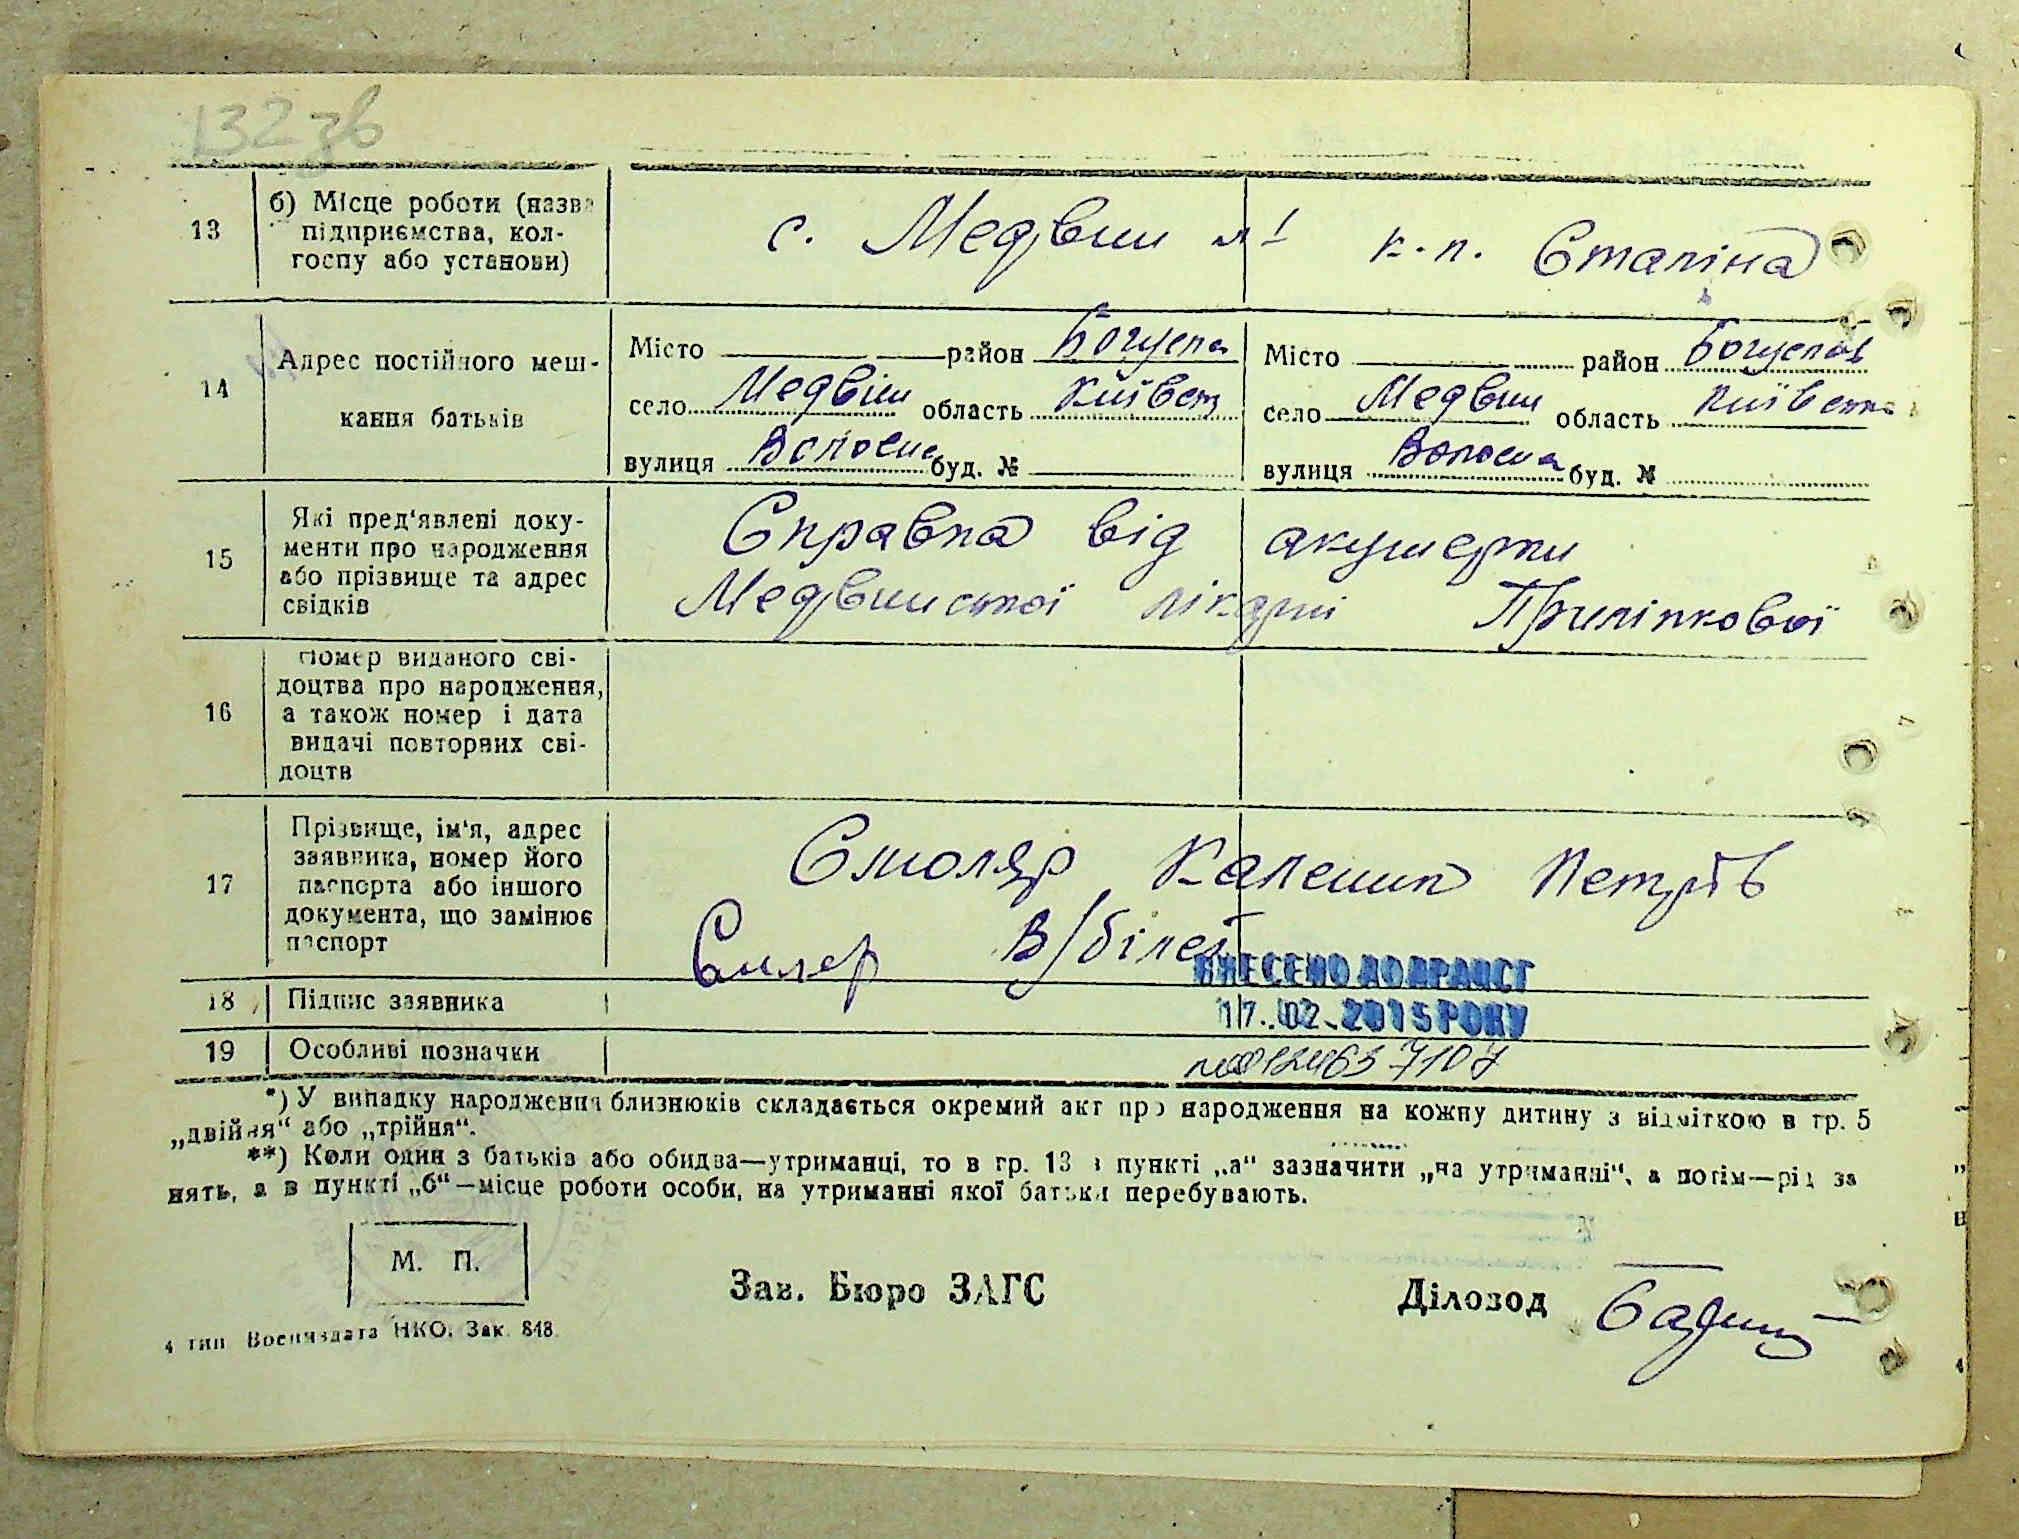 132 зв
13 б) Місце роботи (назва підприємства, колгоспу або установи)
с. Медвин к.п. Сталіна
14 Адрес постійного мешкання батьків
Місто район Богуслав
село Медвин область Київськ
вулиця буд. №
Місто район Богуслав
село Медвин область Київська
вулиця буд. №
15 Які пред'явлені документи про народження або прізвище та адрес свідків
Справка від акушерки
Медвинської лікарні
16 Номер виданого свідоцтва про народження, а також номер і дата видачі повторних свідоцтв
17 Прізвище, ім'я, адрес заявника, номер його паспорта або іншого документа, що замінює паспорт
Столяр Калешик Петрів
В/білет
18 Підпис заявника
ВНЕСЕНО ДО ДРАЦСГ
17. 02. 2015 РОКУ
19 Особливі позначки
*) У випадку народження близнюків складається окремий акт про народження на кожну дитину з відміткою в гр. 5
„двійня“ або „трійня“.
**) Коли один з батьків або обидва—утриманці, то в гр. 13 в пункті „а“ зазначити „на утриманні“, а потім—рід за
нять, а в пункті „б“—місце роботи особи, на утриманні якої батьки перебувають.
М. П.
Зав. Бюро ЗАГС
Діловод
4 тип Воениздата НКО. Зак. 848.